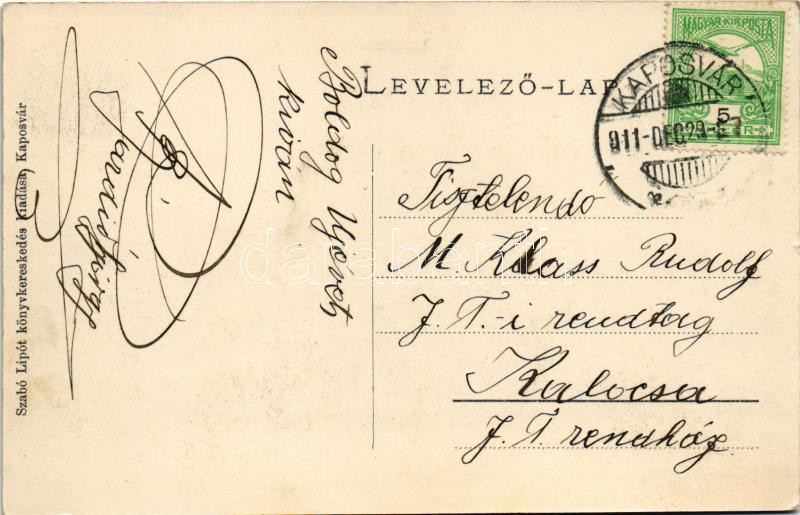 Szabó Lipót könyvkereskedés kiadása, Kaposvár
Boldog Ujévet
kiván
LEVELEZŐ-LAP
MAGYAR KIR. POSTA
5
KAPOSVÁR
911-DEC.29
Tisztelendő
M. Klass Rudolf
J. T.-i rendtag
Kalocsa
J. T. rendház
darabanth